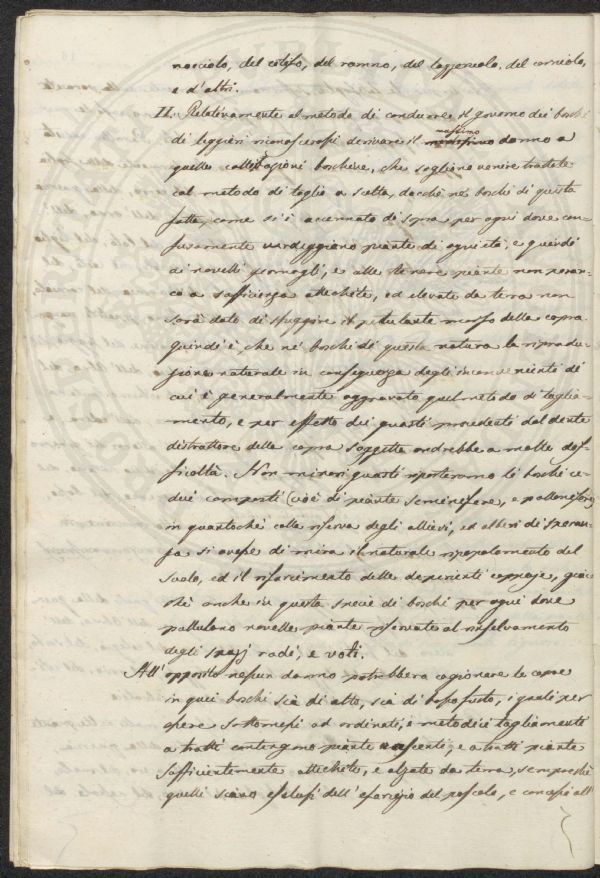 nocciolo, del citiso, del ramno, del lazzeruolo, del corniolo,
e d'altri.
II. Relativamente al metodo di condurre il governo dei boschi
di leggieri riconoscerassi derivare il massimo danno a
quelle coltivazioni boschive, che sogliono venire trattate
col metodo di taglio a scelta, dacchè nei boschi di questa
fatta, come si è accennato di sopra per ogni dove con-
fusamente verdeggiano piante di ogni età, e quindi
ai novelli germogli, e alle tenere piante non peran-
co a sufficienza attechite, ed elevate da terra non
sarà dato di sfuggire il petulante morso della capra
Quindi è, che ne' boschi di questa natura la riprodu-
zione naturale in conseguenza degli inconvenienti di
cui è generalmente aggravato quel metodo di taglia-
mento, e per effetto dei guasti procedenti dal dente
distruttore della capra soggetta andrebbe a molte dif-
ficoltà. Non minori guasti riporteranno li boschi ce-
dui composti (cioè di piante seminifere, e pollonifere)
in quantochè colla riserva degli allievi, ed alberi di speran-
za si avesse di mira il naturale ripopolamento del
suolo, ed il rifarcimento delle deperienti ceppaje, giac-
chè anche in questa specie di boschi per ogni dove
pullulano novelle piante riservate al rinselvamento
degli spazj radi, e voti.
All' opposito nessun danno potrebbero cagionare le capre
in quei boschi sia di alto, sia di basso fusto, i quali per
essere sottomessi ad ordinati, e metodici tagliamenti
a tratti contengono piante nascenti, e a tratti piante
sufficientemente attechite, e alzate da terra, sempreché
quelli siano esclusi dell' esercizio del pascolo, e concessi all'